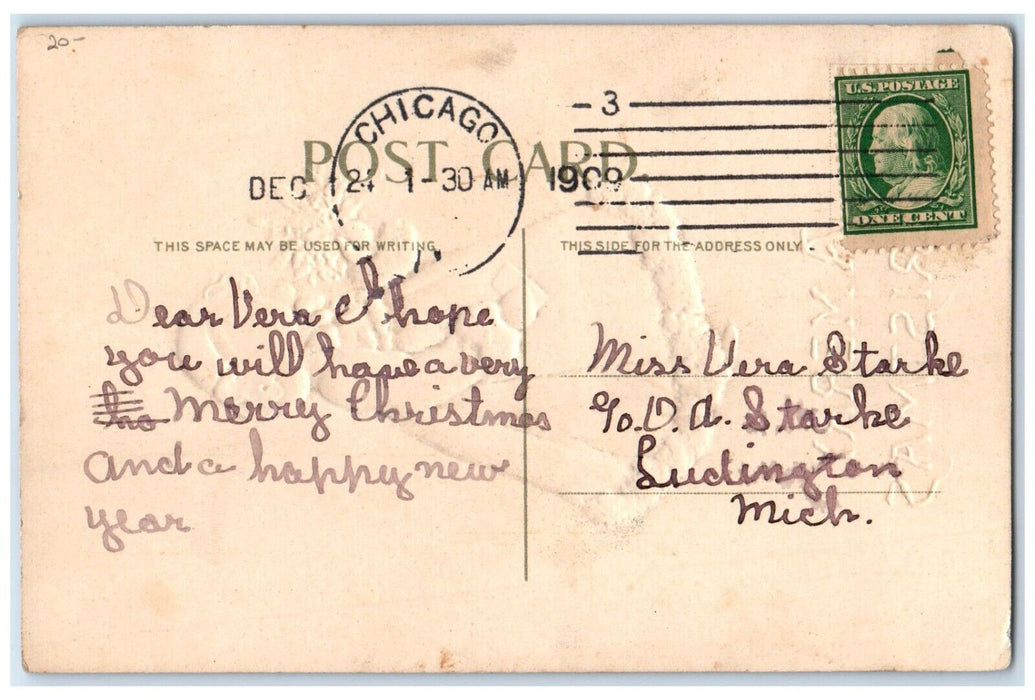 20-
U.S. POSTAGE
CHICAGO
3
POST CARD.
DEC 24 1-30 AM 1909
ONE CENT
THIS SPACE MAY BE USED FOR WRITING.
THIS SIDE FOR THE ADDRESS ONLY.
Dear Vera I hope
you will have a very
Merry Christmas
and a happy new
year
Miss Vera Starke
c/o. D. A. Starke
Ludington
Mich.